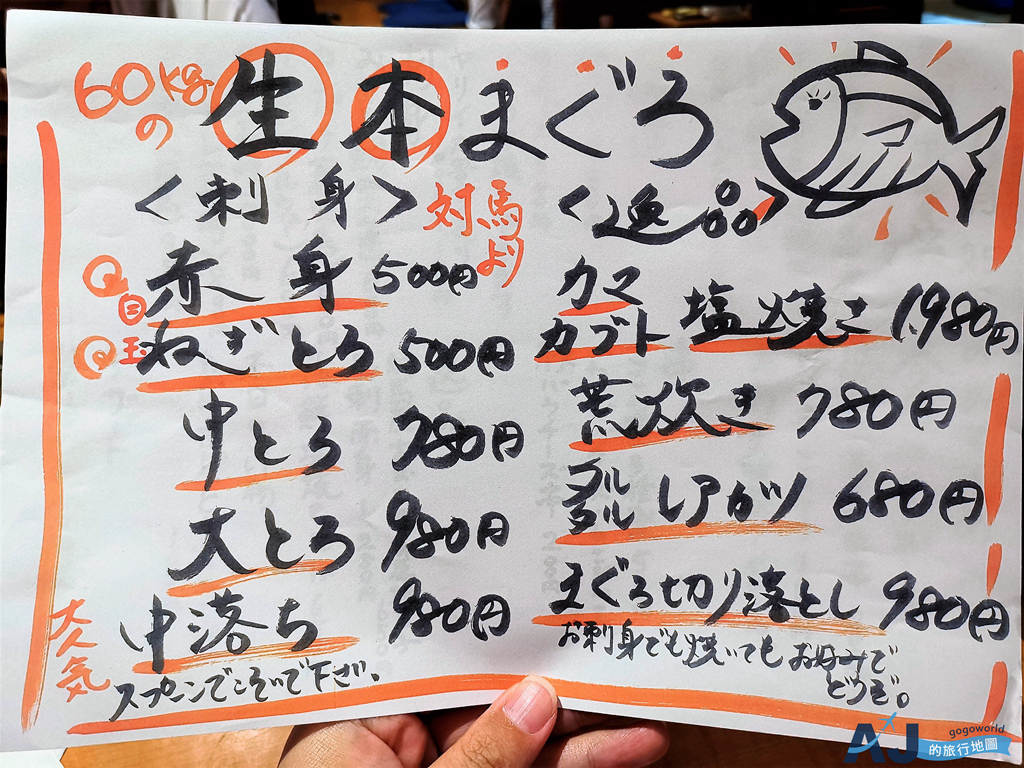 60kgの 生本まぐろ
<刺身>
対馬より
赤身 500円
ねぎとろ 500円
中とろ 780円
大とろ 980円
大人気
中落ち 980円
スプーンでこそいで下さい。
<逸品>
カマ
カブト 塩焼き 1,980円
荒炊き 780円
タルタル レアカツ 680円
まぐろ切り落とし 980円
お刺身でも焼いてもお好みで
どうぞ。
AJ
gogoworld
的旅行地圖